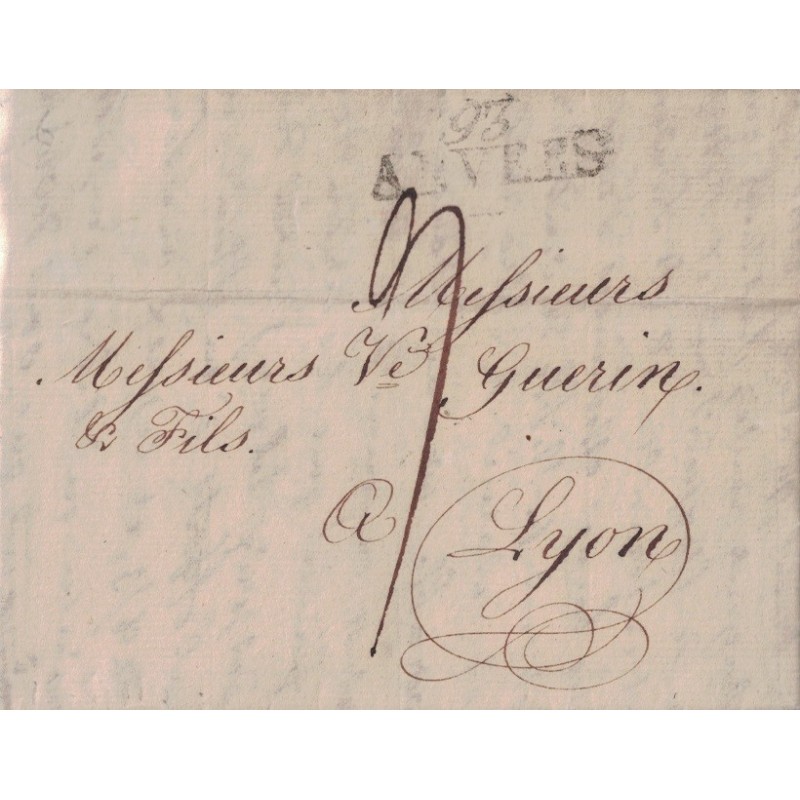 93
ANVERS
Messieurs
Messieurs Ve Guerin.
& Fils.
A Lyon